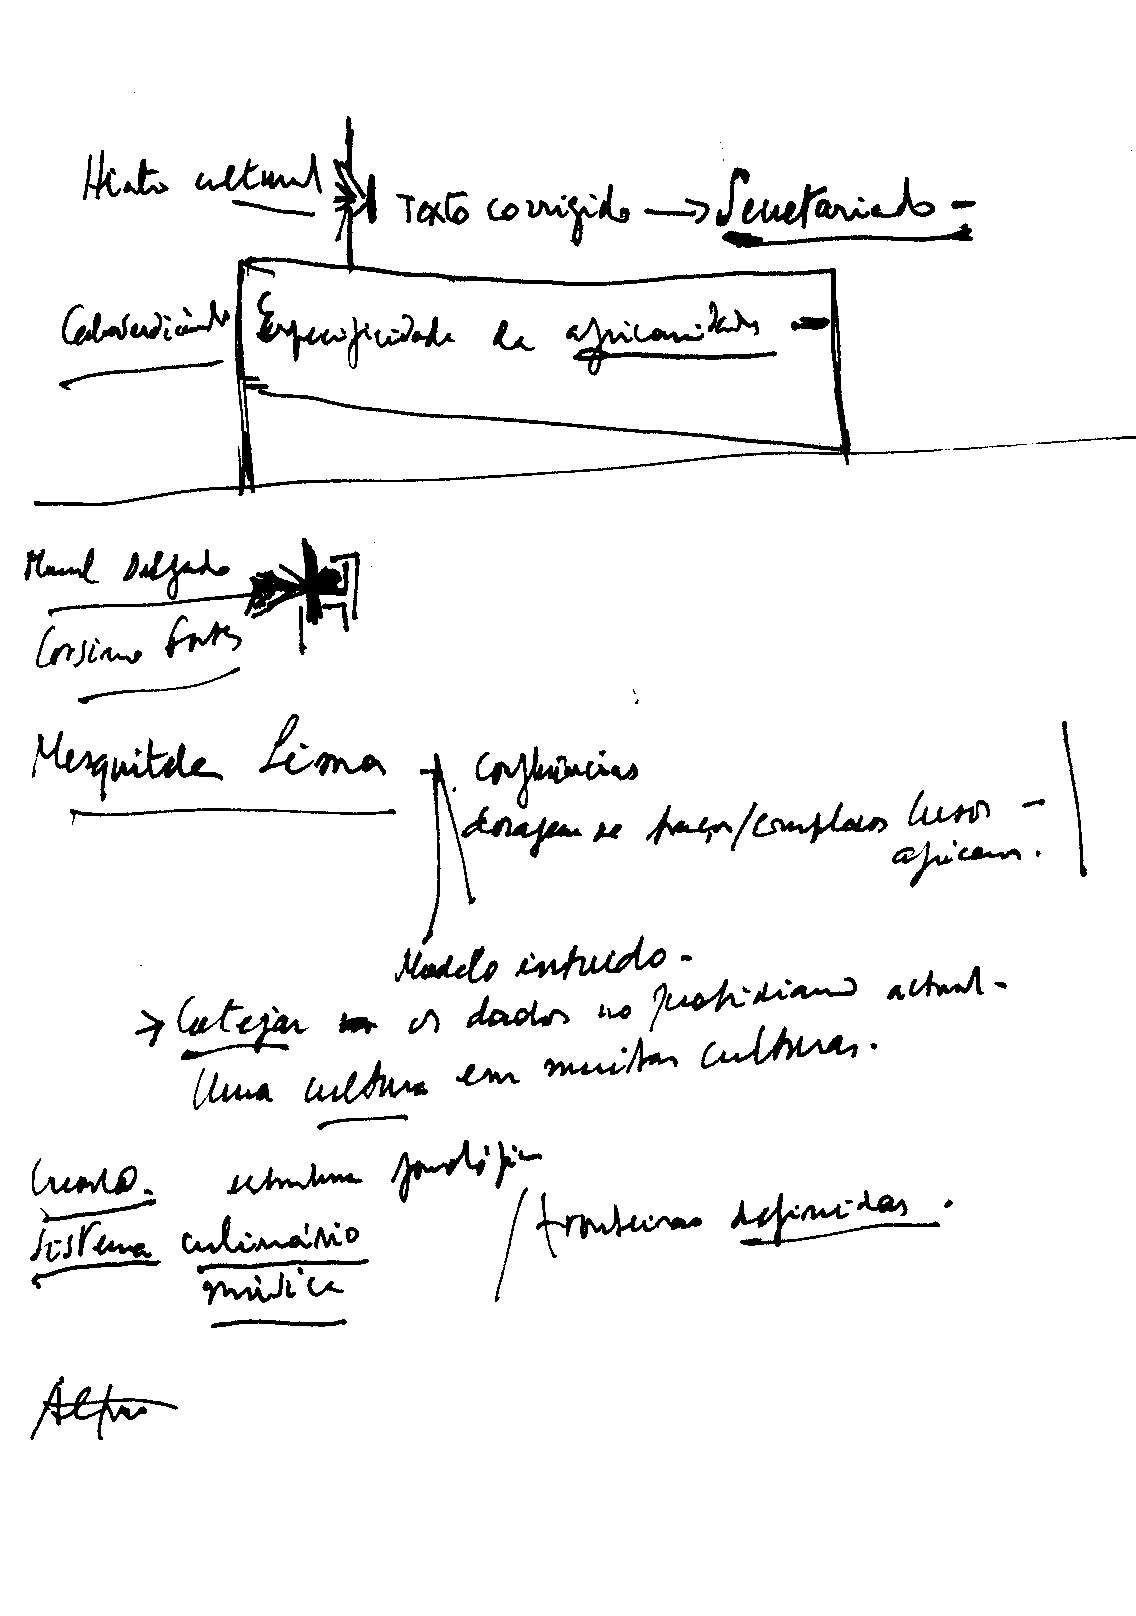 Hiato cultural
Texto corrigido → Secretariado -
Caboverdianidade
Especificidade da africanidade -
Manuel Delgado
Corsino Fortes
Mesquitela Lima
Confluências
dosagem de traços/complexos luso -
africanos.
Modelo intuído -
→ Cotejar os dados no quotidiano actual -
Uma cultura em muitas culturas.
Crioulo. estrutura fonológica
sistema culinário
música
fronteiras definidas.